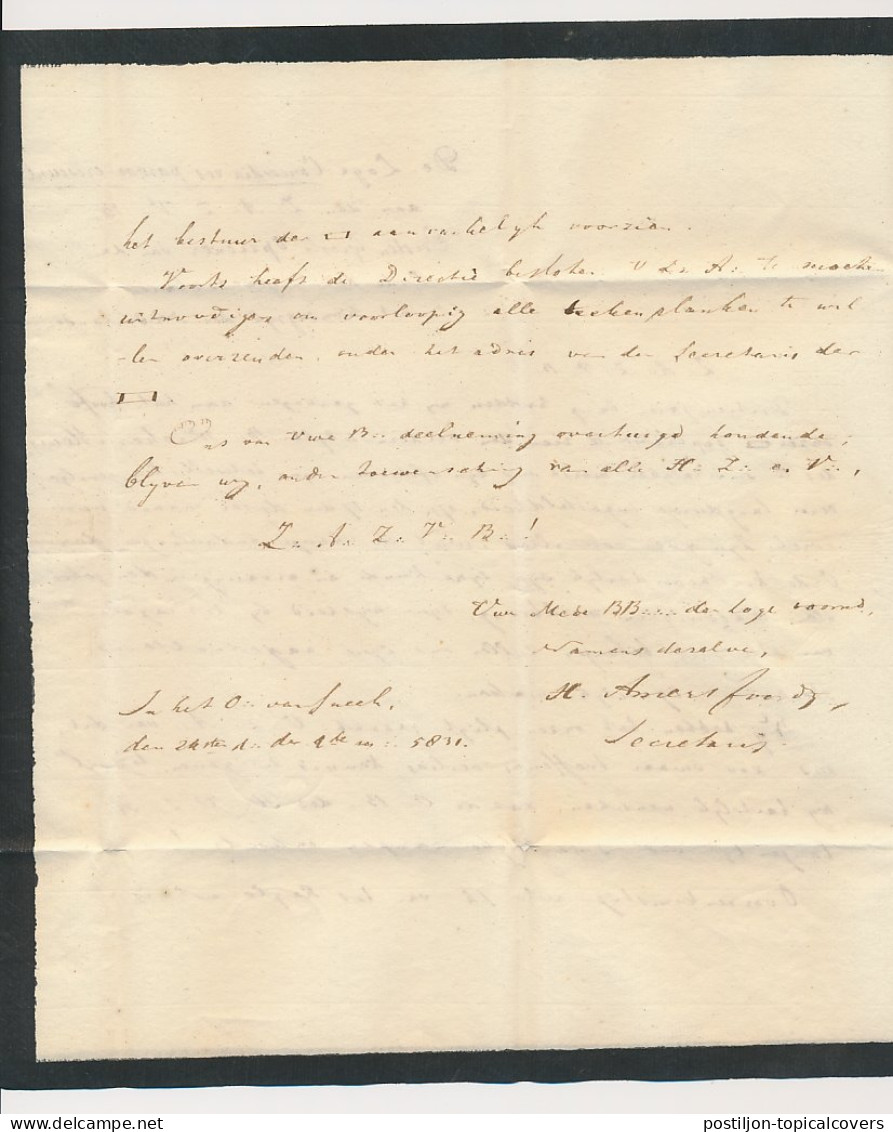 het bestuur der ▭ aanvankelijk voorzien.
Voorts heeft de Directie besloten U L∴ A∴ te moeten
uitnoodigen om voorloopig alle teekenplanken te wil
-len overzenden, onder het adres van den Secretaris der
▭
Ons van Uwe B∴ deelneming overtuigd houdende,
blyven wy, onder toewensching van alle H∴ Z∴ en V∴,
Z∴ A∴ Z∴ V∴ B∴!
Uwe Mede BB∴ der loge voorn.,
Namens dezelve,
H. Amersfoordt,
Secretaris
In het O∴ van Sneek,
den 24sten d∴ der m∴ 5831.
postiljon-topicalcovers